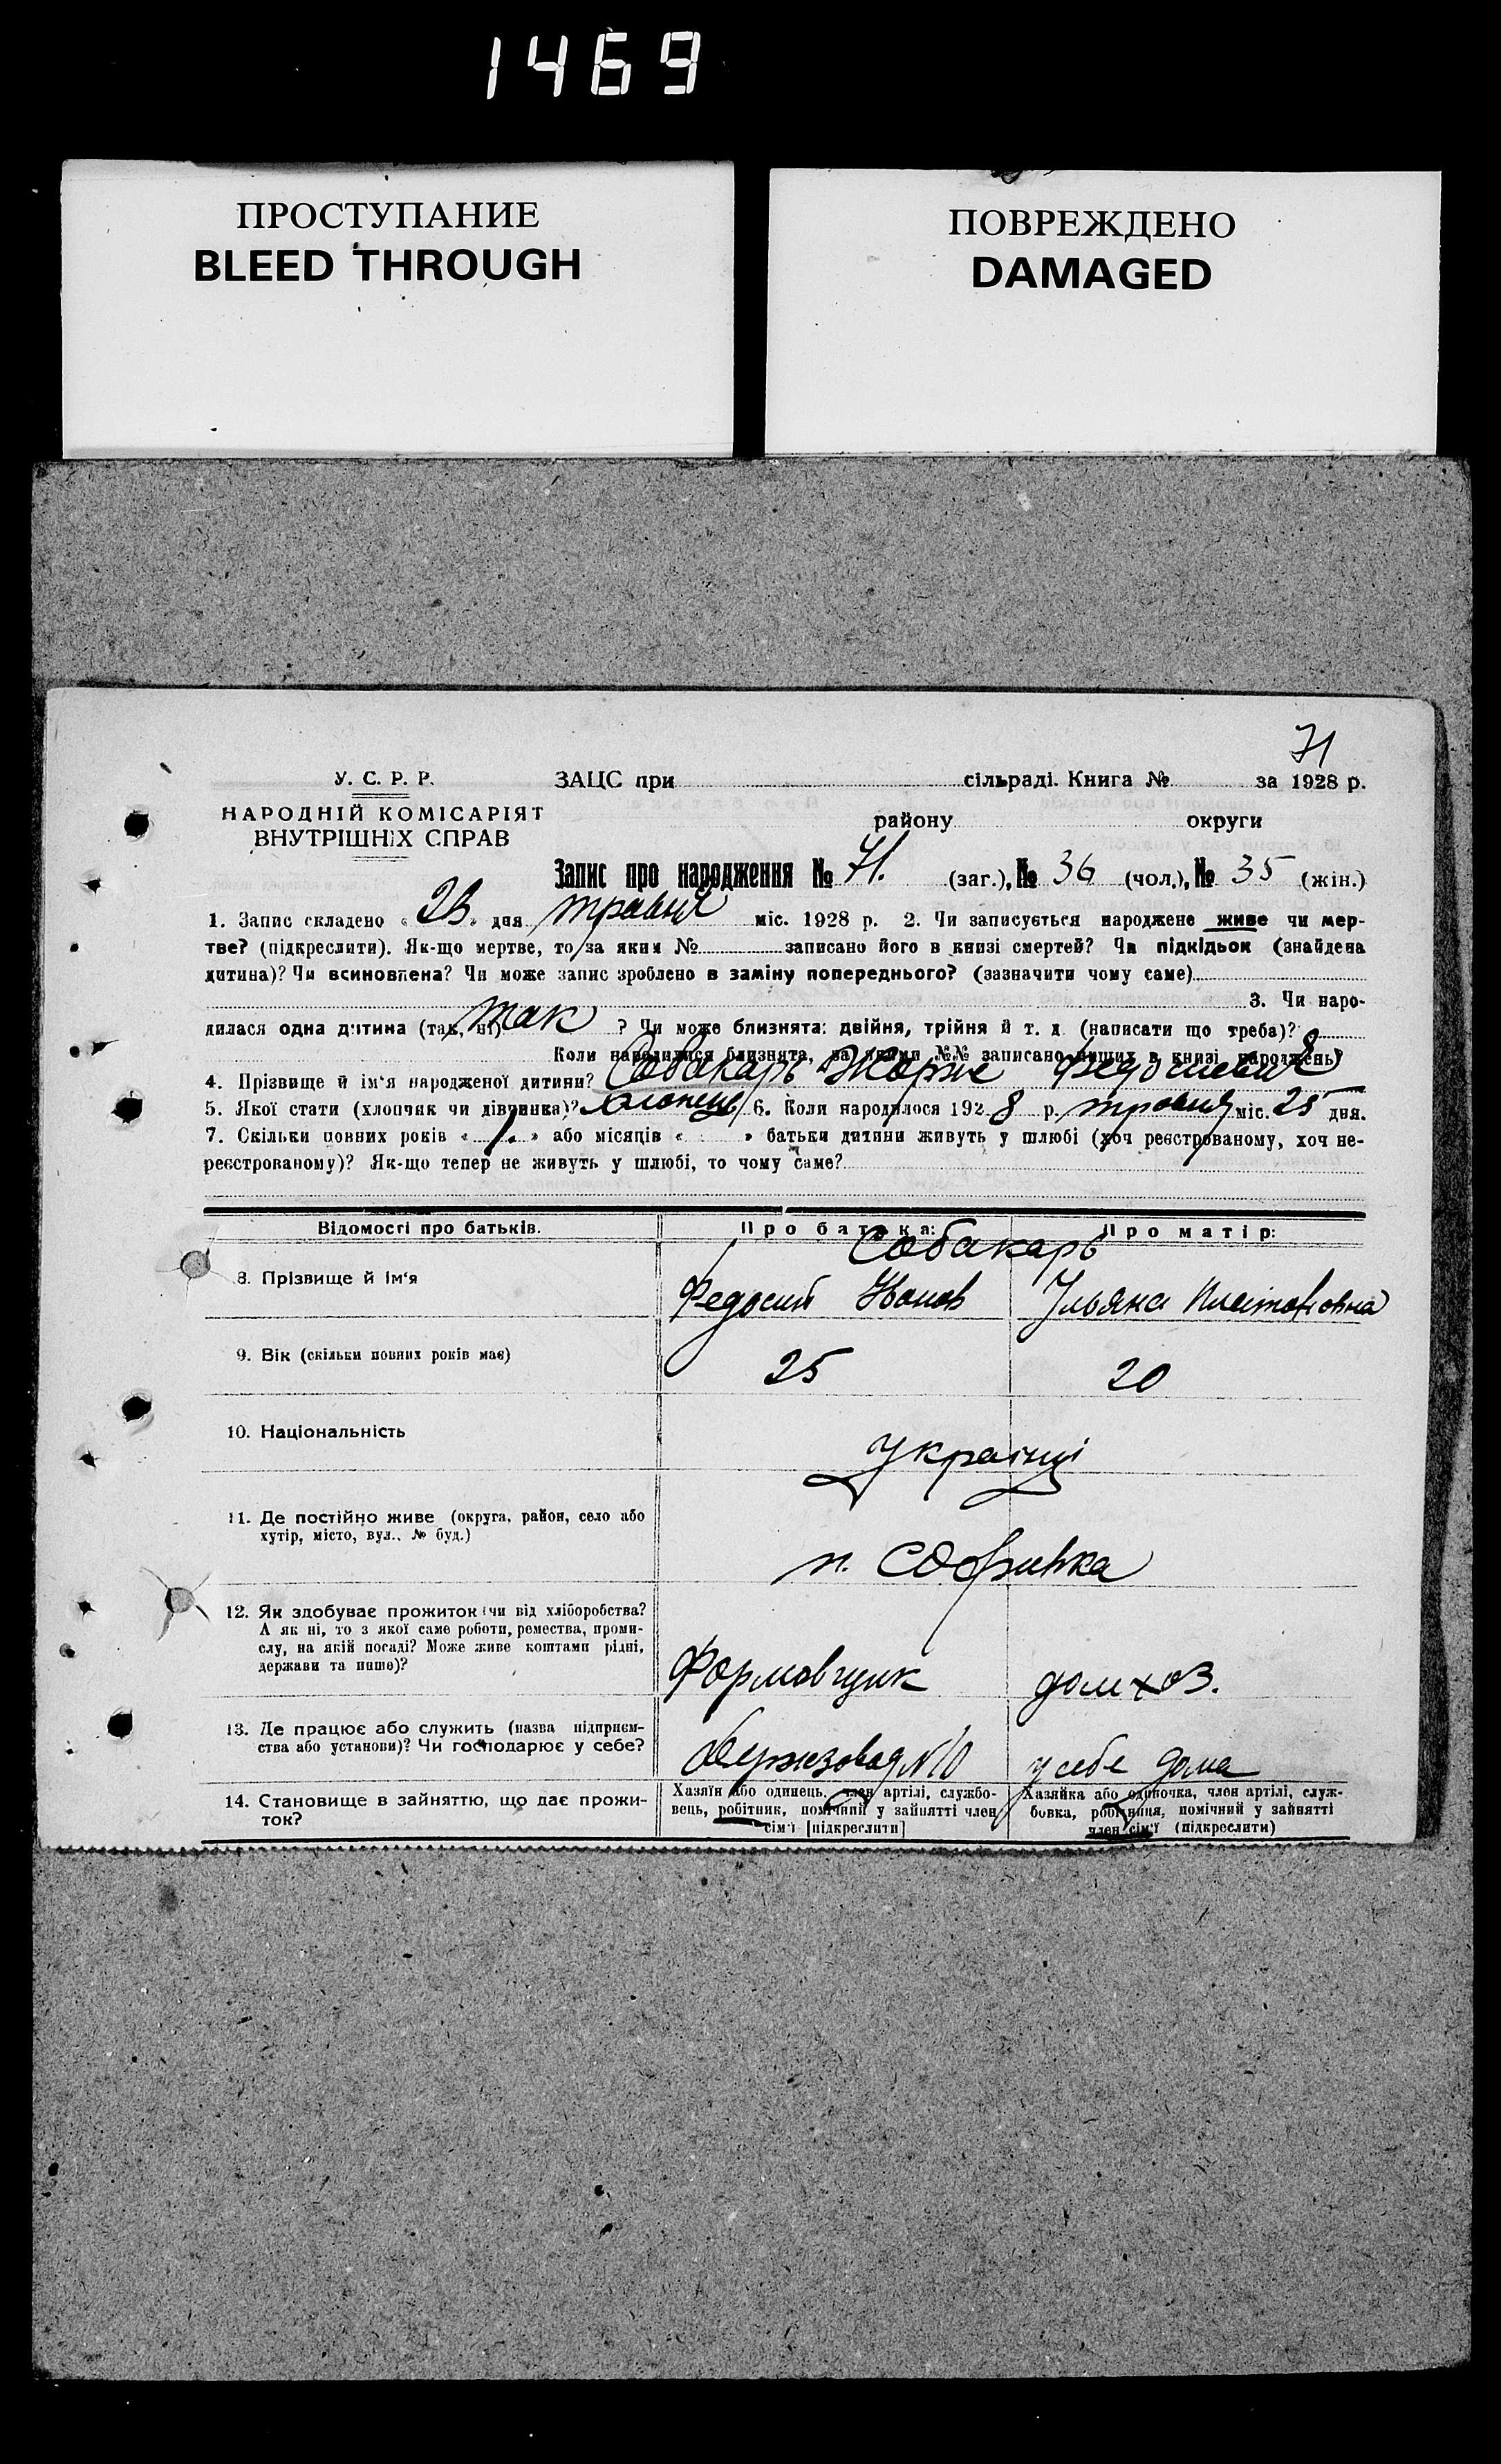 1469
ПРОСТУПАНИЕ
BLEED THROUGH
ПОВРЕЖДЕНО
DAMAGED
71
У. С. Р. Р.
НАРОДНІЙ КОМІСАРІЯТ
ВНУТРІШНІХ СПРАВ
ЗАЦС при сільраді. Книга № за 1928 р.
району округи
Запис про народження № 71. (заг.), № 36 (чол.), № 35 (жін.)
1. Запис складено « 28 » дня травня міс. 1928 р. 2. Чи записується народжене живе чи мер-
тве? (підкреслити). Як-що мертве, то за яким № записано його в книзі смертей? Чи підкідьок (знайдена
дитина)? Чи всиновлена? Чи може запис зроблено в заміну попереднього? (зазначити чому саме)
3. Чи наро-
дилася одна дитина (так, ні) так ? Чи може близнята: двійня, трійня й т. д. (написати що треба)?
Коли народилися близнята, за якими №№ записано инших в книзі народжень?
4. Прізвище й ім'я народженої дитини? Собакарь Жорж Федосиевич
5. Якої стати (хлопчик чи дівчинка)? хлопець 6. Коли народилося 192 8 р. травня міс. 25 дня.
7. Скільки повних років « 1. » або місяців « » батьки дитини живуть у шлюбі (хоч реєстрованому, хоч не-
реєстрованому)? Як-що тепер не живуть у шлюбі, то чому саме?
Відомості про батьків. Про батька: Про матір:
Собакарь
8. Прізвище й ім'я Федосий Иванов Ульяна Платоновна
9. Вік (скільки повних років має) 25 20
10. Національність Українці
11. Де постійно живе (округа, район, село або
хутір, місто, вул., № буд.)
п. Софиевка
12. Як здобуває прожиток (чи від хліборобства?
А як ні, то з якої саме роботи, ремества, проми-
слу, на якій посаді? Може живе коштами рідні,
держави та инше)?
Формовщик дом хоз.
13. Де працює або служить (назва підприєм-
ства або установи)? Чи господарює у себе?
Держзавод №10 у себе дома
14. Становище в зайняттю, що дає прожи-
ток?
Хазяїн або одинець, член артілі, службо-
вець, робітник, помічний у зайнятті член
сім'ї [підкреслити]
Хазяйка або одиночка, член артілі, служ-
бовка, робітниця, помічний у зайнятті
член сім'ї (підкреслити)